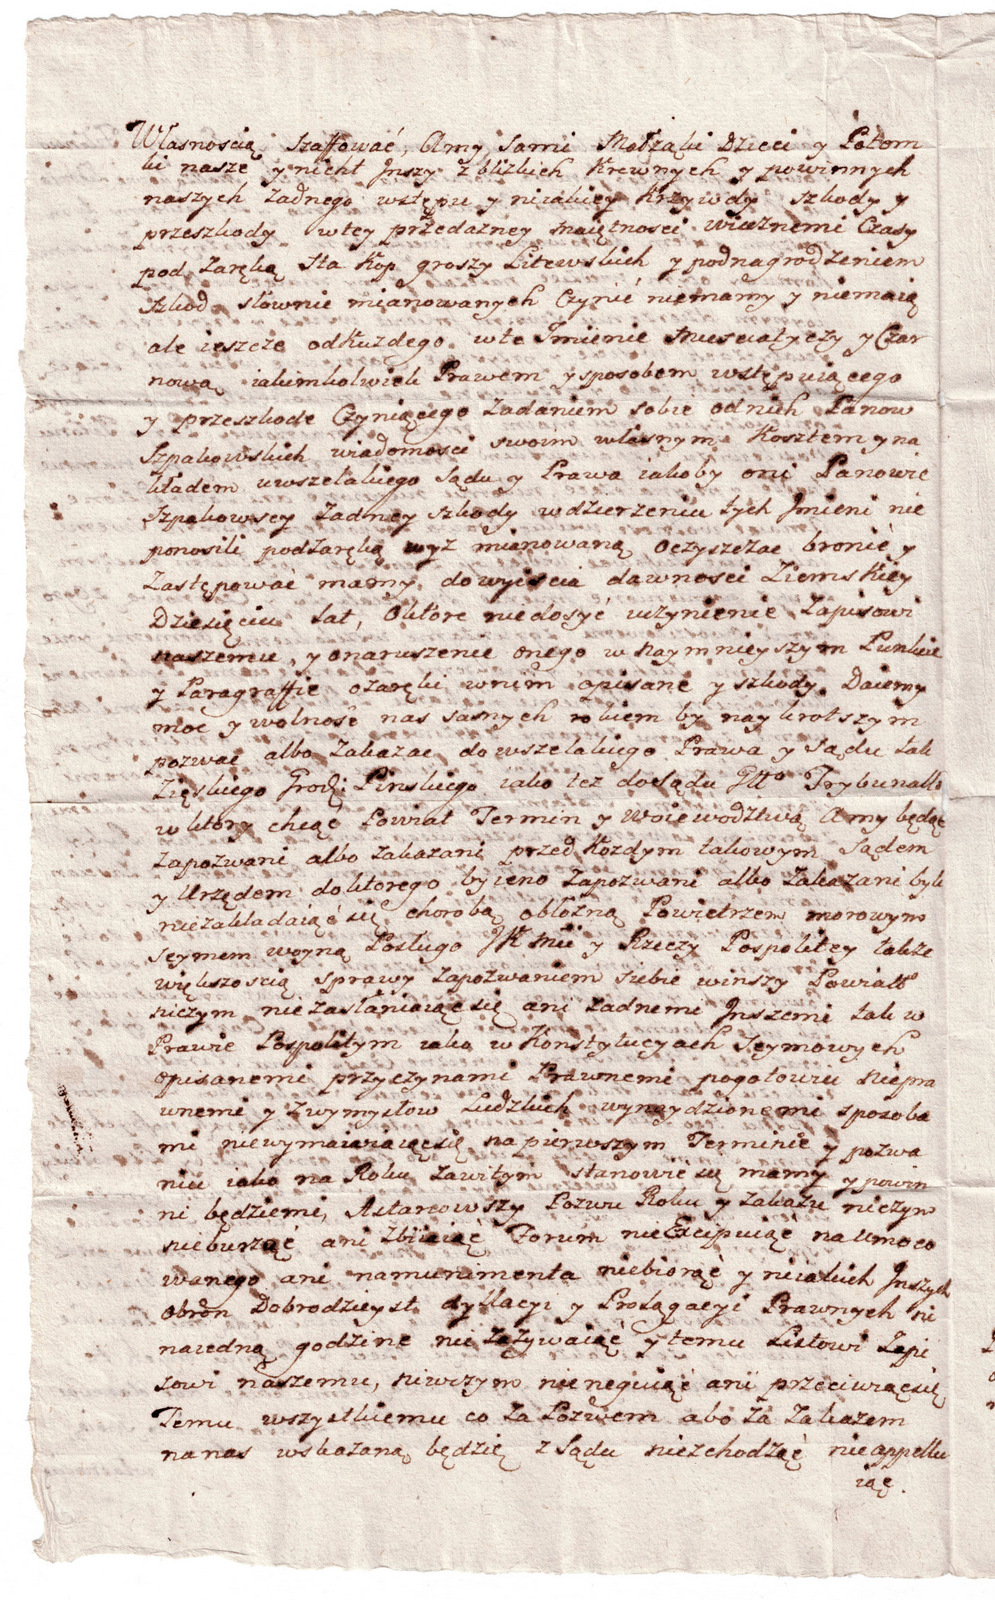 Własnoscią szaffować, Amy sami Małżąki Dzieci y Potom
ki nasze y nicht Jnszy zblizkich Krewnych y powinnych
naszych Zadnego wstępu y niiakiey Krzywdy szkody y
przeszkody wtey przedazney maiętnosci wiecznemi Czasy
pod zaręką sta Kop groszy Litewskich y podnagrodzeniem
szkod słownie mianowanych Czynić niemamy y niemaią
ale ieszcze odkużdego wte Jmienie y Czar
nową iakimkolwiek Prawem y sposobem wstępuiącego
y przeszkode Czyniącego Zadaniem sobie odnich Panow
Szpakowskich wiadomosci swoim własnym Kosztem y na
kładem uwszelakiego Sądu y Prawa iakoby oni Panowie
Szpakowscy Zadney szkody wdzierzeniu tych Jmieni nie
ponosili podzaręką wyz mianowaną Oczyszczac bronić y
Zastępować mamy dowyiscia dawnosci Ziemskiey
Dziesięciu Lat, Oktore niedosyć uczynienie Zapisowi
naszemu, y onaruszenie onego w naymnieyszym Punkcie
y Paragraffie ozaręki wnim opisane y szkody Daiemy
moc y wolność nas samych rokiem by naykrotszym
pozwac albo Zakazac dowszelakiego Prawa y Sądu tak
Grodz: Pinskiego iako tez dosądu Głło Trybunalło
wktory chcąc Powiat Termin y woiewodztwą Amy będąc
Zapozwani albo zakazani przed Kozdym takowym Sądem
y Urzędem doktorego by ieno Zapozwani albo Zakazani byli
niezakladaiąć się chorobą obłożną Powietrzem morowym
Seymem woyną Posługo JK Mści y Rzeczy Pospolitey także
większoscią sprawy Zapozwaniem siebie winszy Powiatt
niczym niezasłaniaiącsię ani Zadnemi Jnszemi tak w
Prawie Pospolitym iako w Konstytucyach Seymowych
opisanemi przyczynami Prawnemi pogotowiu niepra
wnemi y zwymysłow Ludzkich wynaydzionemi sposoba
mi niewymawiaiącsię napierwszym Terminie y pozwa
niu iako na Roku Zawitym stanowić się mamy y powin
ni będziemi, Astanowszy Pozwu Roku y Zakazu niczym
nieburząć ani zbiiaiąć Forum nieExcipuiąć naumoco
wanego ani namunimenta niebiorąc y niiakich Jnszych
obron Dobrodzieyst dyllacyi y Prolągacyi Prawnych ni
naiedną godzine nie Zażywaiąć y temu Listowi Zapi
sowi naszemu, niwczym nieneguiąc ani przeciwiącsię
Temu wszystkiemu co za Pozwem abo za zakazem
nanas wskazaną będzie z Sądu niezchodząć nieappellu
iąc.